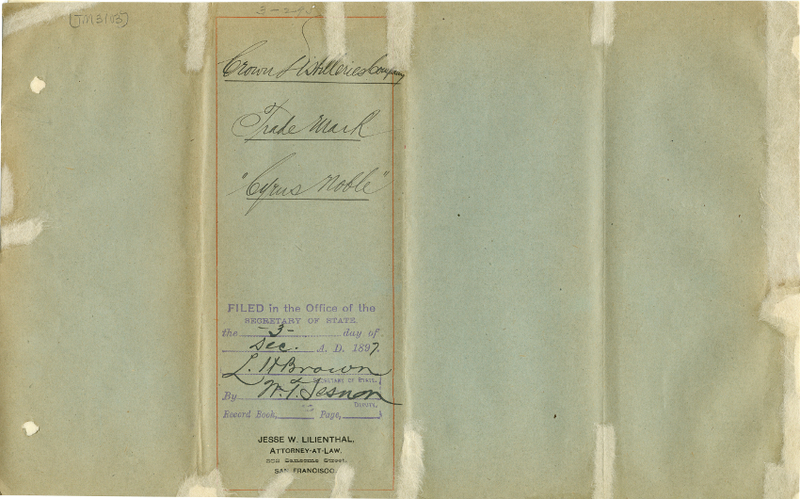 [TM3103]
Crown Distilleries Company
Trade Mark
"Cyrus Noble"
FILED in the Office of the
SECRETARY OF STATE,
the -3- day of
Dec. A. D. 1897.
L. H. Brown
SECRETARY OF STATE.
By W. T. Sesnon
DEPUTY.
Record Book, Page,
JESSE W. LILIENTHAL,
ATTORNEY-AT-LAW,
Sansome Street,
SAN FRANCISCO.